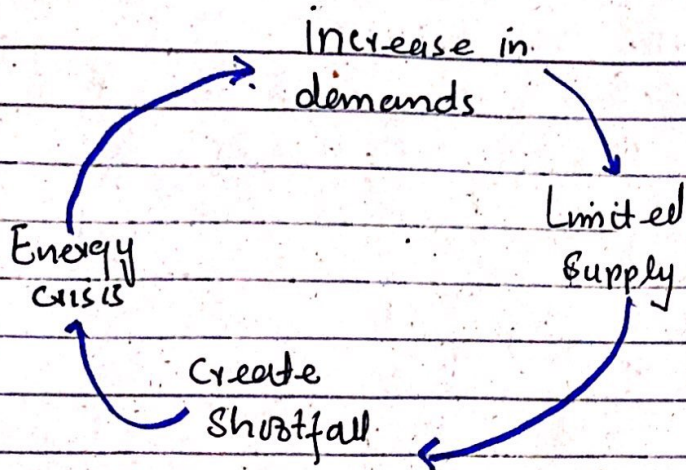 Increase in
demands
Limited
Supply
Create
Shortfall
Energy
crisis